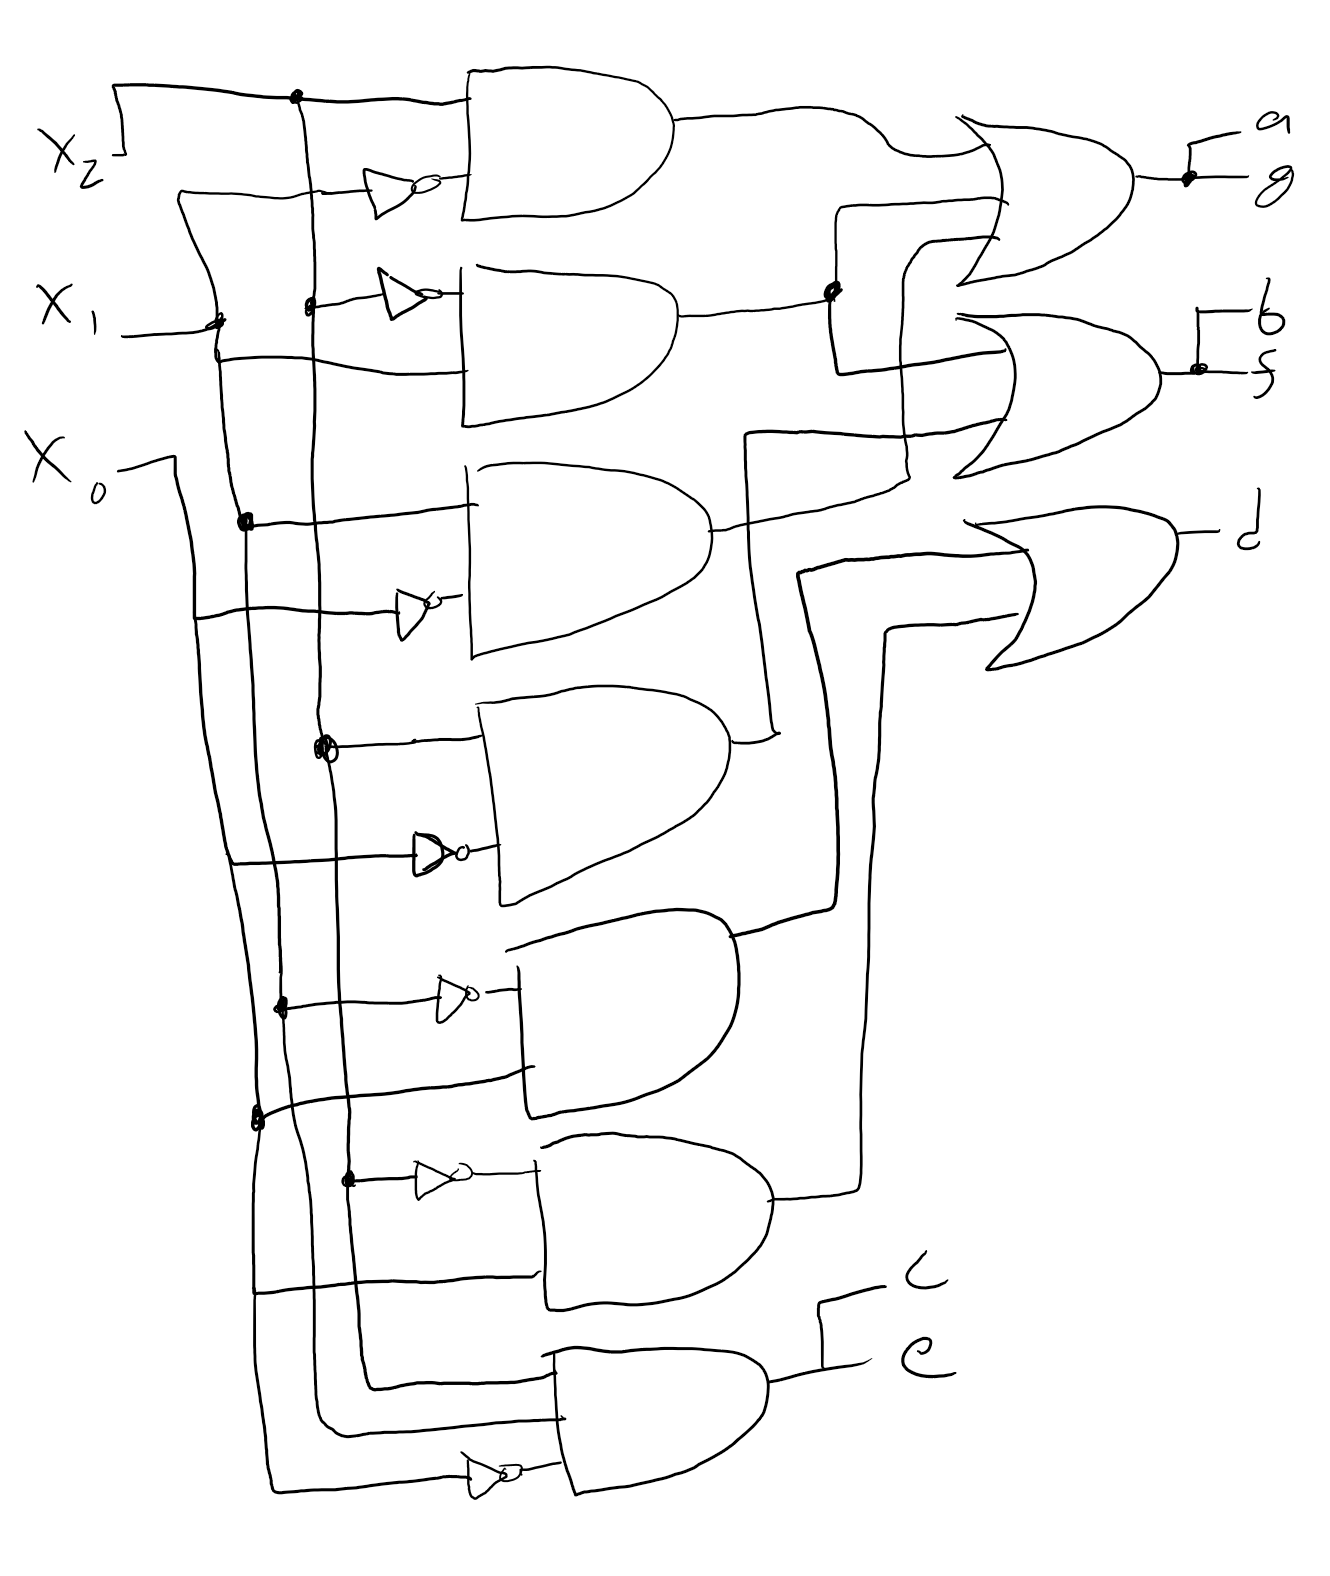 X2
X1
X0
a
g
b
f
d
c
e